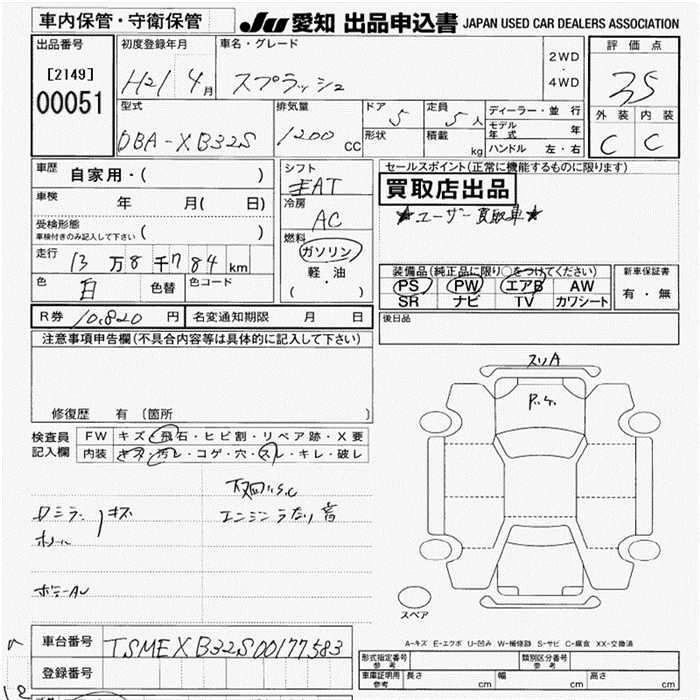 車内保管・守衛保管
JU 愛知 出品申込書 JAPAN USED CAR DEALERS ASSOCIATION
出品番号 初度登録年月 車名・グレード 2WD ・ 4WD 評価点
[2149] H21 4月 スプラッシュ 3.5
00051
型式 排気量 ドア 5 定員 5人 ディーラー・並行 外装 内装
DBA-XB32S 1200 cc 形状 積載 kg モデル年式 年 C C
ハンドル 左・右
車歴 自家用・( )
シフト 手AT
セールスポイント(正常に機能するものに限ります)
買取店出品
車検 年 月( 日)
冷房 AC
★ユーザー買取車★
受検形態 ( )
車検付きのみ記入して下さい
燃料 ガソリン 軽・油 ( )
走行 13万8千784km
装備品(純正品に限り○をつけてください) 新車保証書
色 白 色替 色コード
PS PW エアB AW 有・無
SR ナビ TV カワシート
R券 10,820円 名変通知期限 月 日
後日品
注意事項申告欄(不具合内容等は具体的に記入して下さい)
スリA
P.ケ.
修復歴 有 (箇所 )
検査員記入欄 FW キズ・飛石・ヒビ割・リペア跡・X要
内装 キズ・汚レ・コゲ・穴・スレ・キレ・破レ
下回リS.C
Dミラー キズ エンジンうなり音
ホイール
ボデーAU
スペア
車台番号 TSMEXB32S00177583
登録番号
A-キズ E-エクボ U-凹み W-補修跡 S-サビ C-腐食 XX-交換済
形式指定番号 参考 類別区分番号 参考
車庫証明用 参考 長さ cm 幅 cm 高さ cm